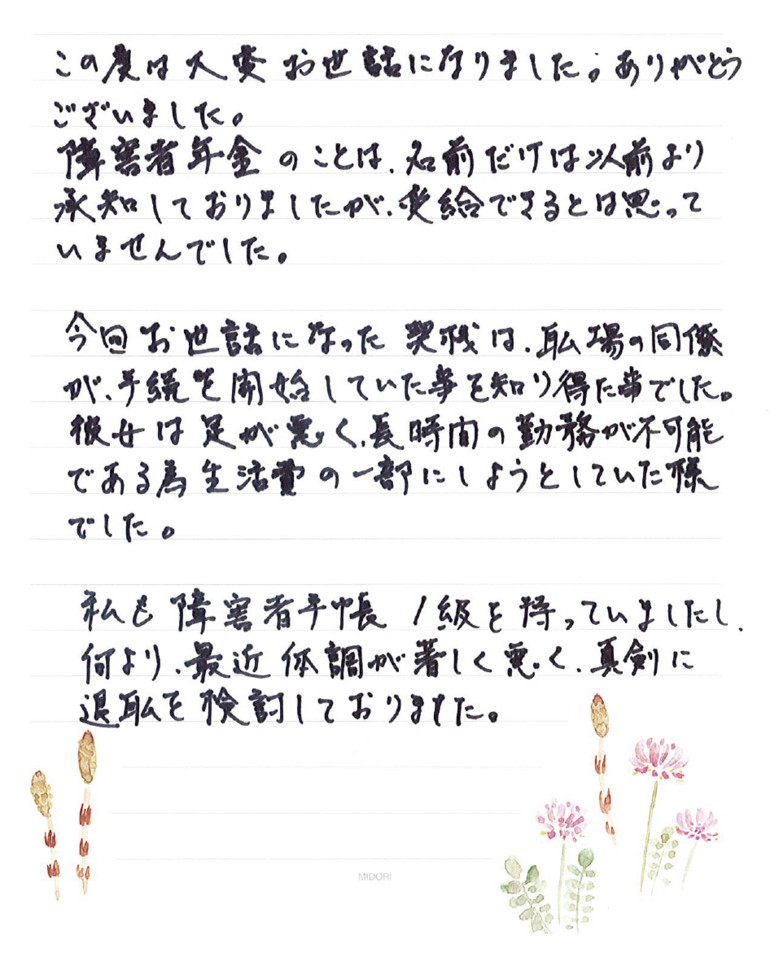 この度は大変お世話になりました。ありがとう
ございました。
障害者年金のことは、名前だけは以前より
承知しておりましたが、受給できるとは思って
いませんでした。
今回お世話になった契機は、職場の同僚
が、手続を開始していた事を知り得た事でした。
彼女は足が悪く、長時間の勤務が不可能
である為生活費の一部にしようとしていた様
でした。
私も障害者手帳1級を持っていましたし、
何より、最近体調が著しく悪く、真剣に
退職を検討しておりました。
MIDORI